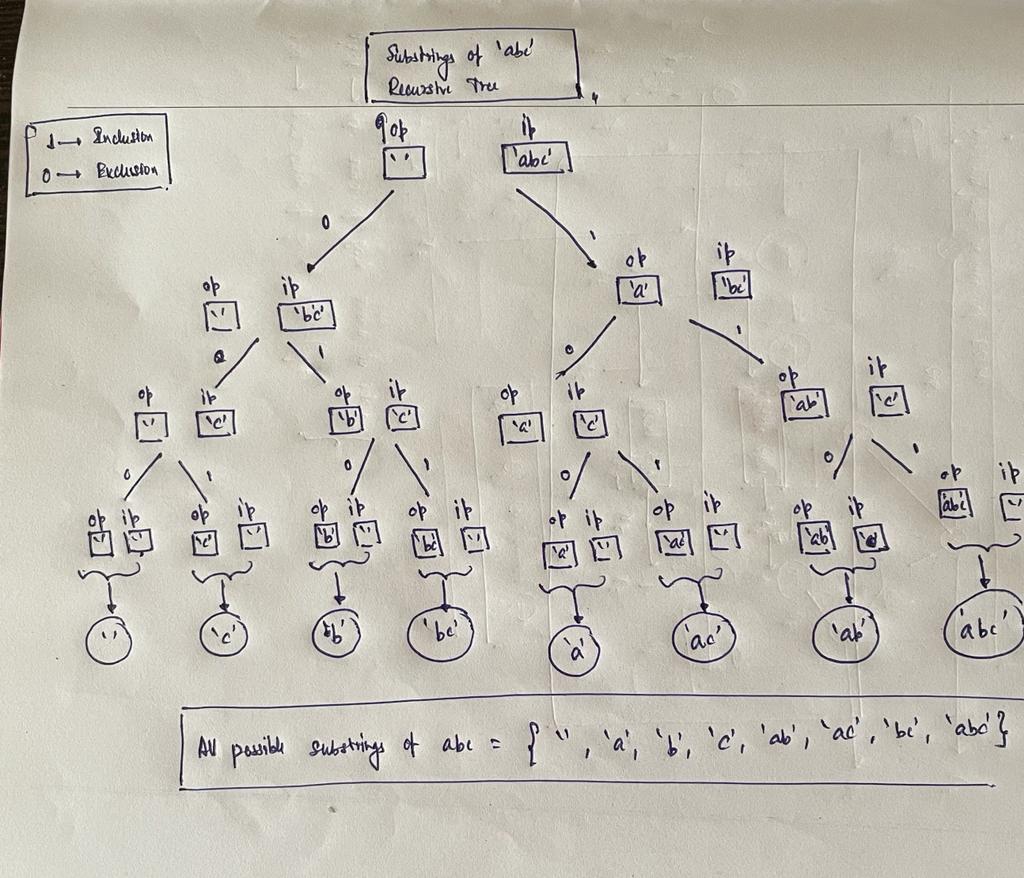 Substrings of 'abc'
Recursive Tree
1 → Inclusion
0 → Exclusion
op ip
'' 'abc'
0 1
op ip op ip
'' 'bc' 'a' 'bc'
0 1 0 1
op ip op ip op ip op ip
'' 'c' 'b' 'c' 'a' 'c' 'ab' 'c'
0 1 0 1 0 1 0 1
op ip op ip op ip op ip op ip op ip op ip op ip
'' '' 'c' '' 'b' '' 'bc' '' 'a' '' 'ac' '' 'ab' 'abc' ''
'' 'c' 'b' 'bc' 'a' 'ac' 'ab' 'abc'
All possible substrings of abc = { '', 'a', 'b', 'c', 'ab', 'ac', 'bc', 'abc' }